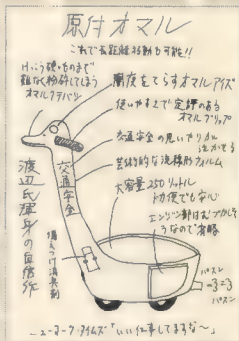 原付オマル
これで長距離移動も可能!!
けっこう硬いものまで
難なく粉砕してしまう
オマルクチバシ
闇夜をてらすオマルアイズ
使いやすさで定評のある
オマルグリップ
交通安全の思いやりが
生かせる
芸術的な流線形フォルム
大容量250リットル
初便でも安心
エンジン部はむずかしそ
うなので省略
交通安全
渡辺氏渾身の自信作
備えつけ消臭剤
バスン
バスン
ニューヨークタイムズ「いい仕事してますな〜」